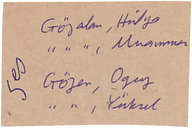 Göğalan, Hülya
" " " , Muammer
Göğer, Oguz
" " , Yüksel